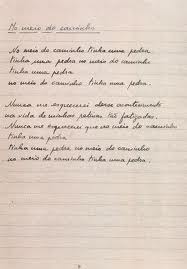 No meio do caminho
No meio do caminho tinha uma pedra
tinha uma pedra no meio do caminho
tinha uma pedra
no meio do caminho tinha uma pedra.
Nunca me esquecerei desse acontecimento
na vida de minhas retinas tão fatigadas.
Nunca me esquecerei que no meio do caminho
tinha uma pedra
tinha uma pedra no meio do caminho
no meio do caminho tinha uma pedra.